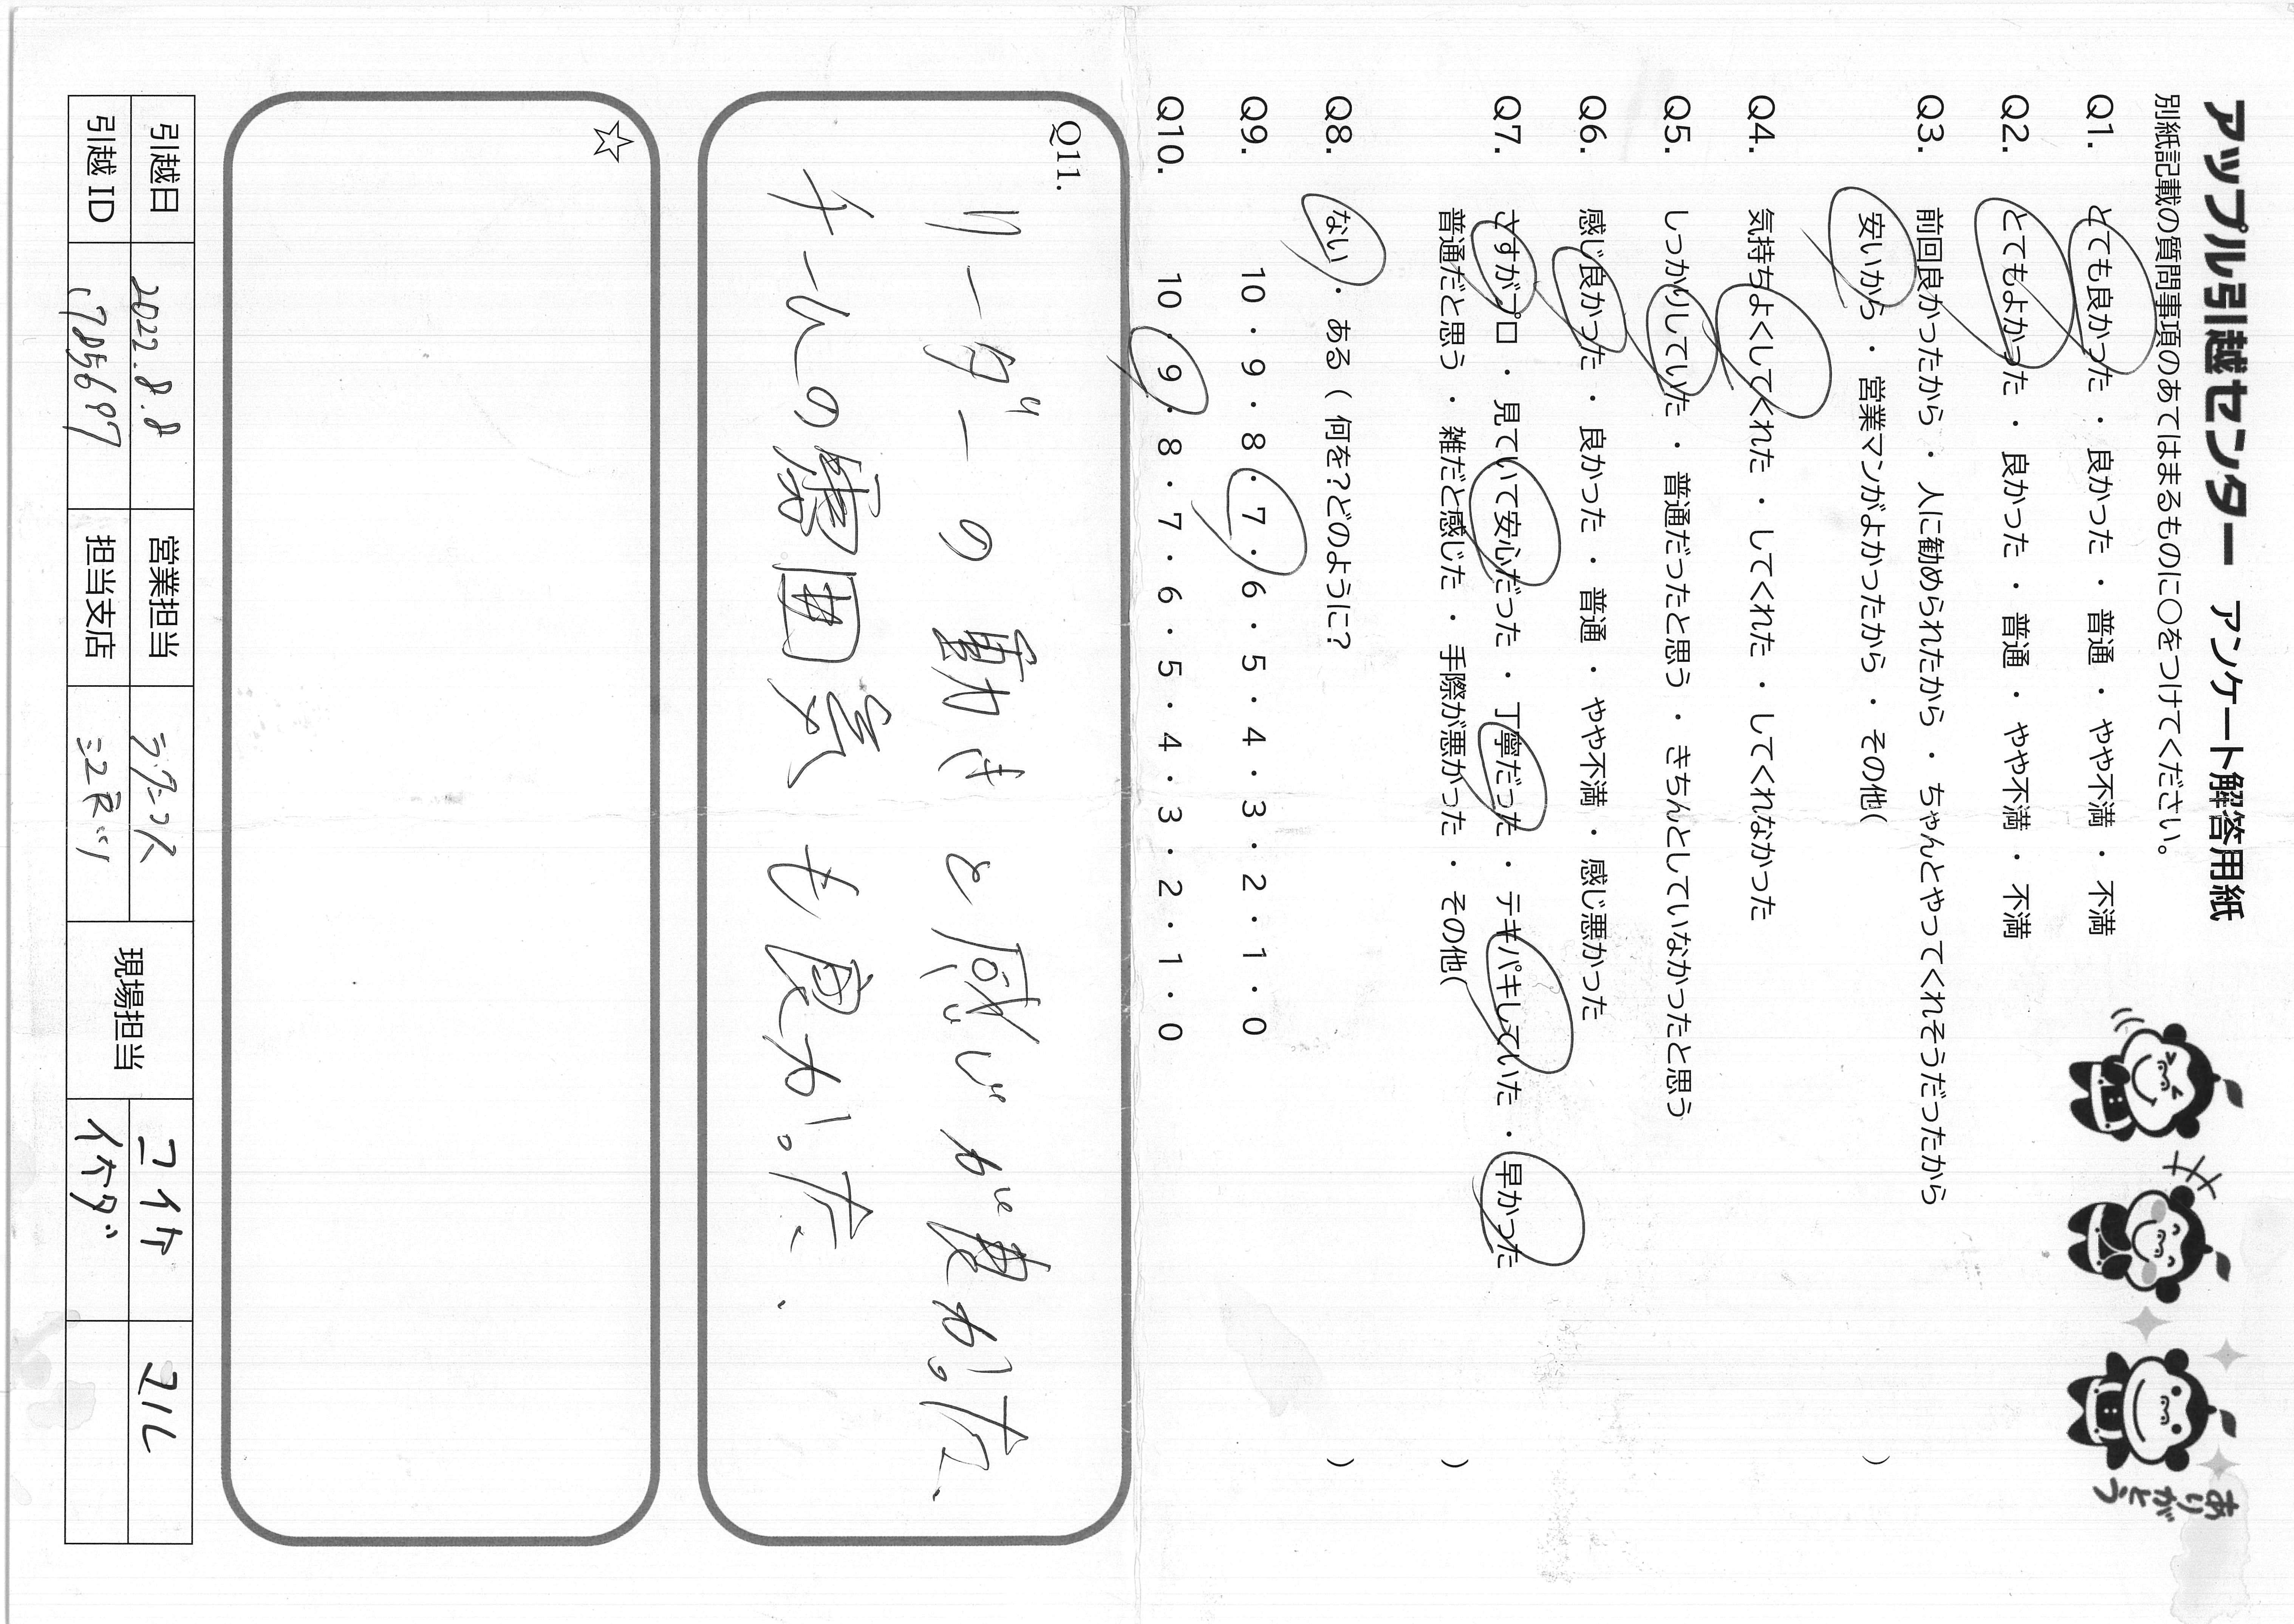 アップル引越センター アンケート解答用紙
別紙記載の質問事項のあてはまるものに○をつけてください。
Q1. とても良かった ・ 良かった ・ 普通 ・ やや不満 ・ 不満
Q2. とてもよかった ・ 良かった ・ 普通 ・ やや不満 ・ 不満
Q3. 前回良かったから ・ 人に勧められたから ・ ちゃんとやってくれそうだったから
安いから ・ 営業マンがよかったから ・ その他( )
Q4. 気持ちよくしてくれた ・ してくれた ・ してくれなかった
Q5. しっかりしていた ・ 普通だったと思う ・ きちんとしていなかったと思う
Q6. 感じ良かった ・ 良かった ・ 普通 ・ やや不満 ・ 感じ悪かった
Q7. さすがプロ ・ 見ていて安心だった ・ 丁寧だった ・ テキパキしていた ・ 早かった
普通だと思う ・ 雑だと感じた ・ 手際が悪かった ・ その他( )
Q8. ない ・ ある ( 何を?どのように? )
Q9. 10 ・ 9 ・ 8 ・ 7 ・ 6 ・ 5 ・ 4 ・ 3 ・ 2 ・ 1 ・ 0
Q10. 10 ・ 9 ・ 8 ・ 7 ・ 6 ・ 5 ・ 4 ・ 3 ・ 2 ・ 1 ・ 0
ありがとう
Q11.
リーダーの動きと感じが良かった、
チームの雰囲気も良かった、
☆
引越日 2022.8.8 営業担当 現場担当 コイケ
引越 ID 担当支店 イケダ